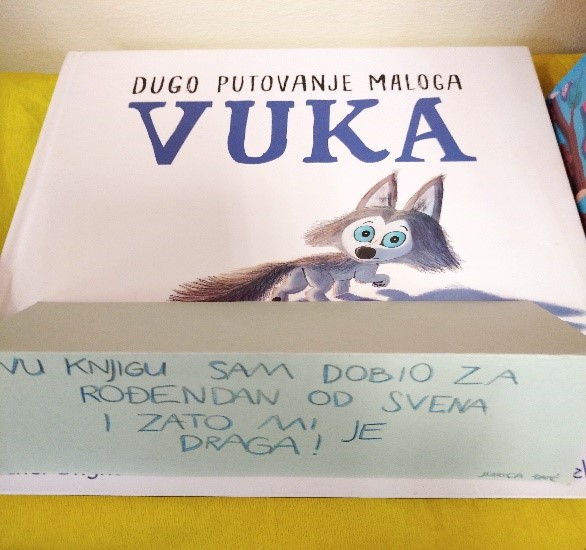 DUGO PUTOVANJE MALOGA
VUKA
VU KNJIGU SAM DOBIO ZA
ROĐENDAN OD SVENA
I ZATO MI JE
DRAGA!